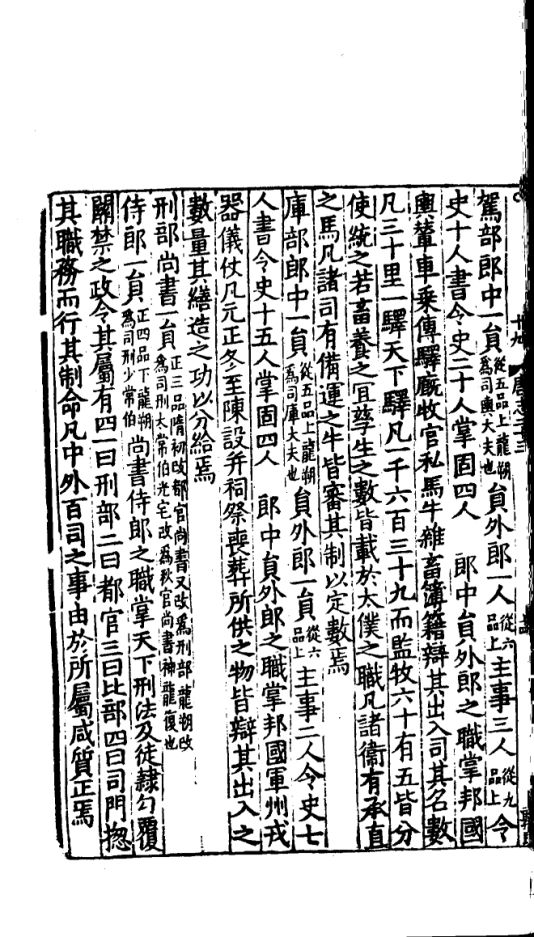 駕部郎中一員從五品上龍朔為司輿大夫也員外郎一人從六品上主事三人從九品上令
史十人書令史二十人掌固四人　郎中員外郎之職掌邦國
輿輦車乘傳驛厩牧官私馬牛雜畜簿籍辯其出入司其名數
凡三十里一驛天下驛凡一千六百三十九而監牧六十有五皆分
使統之若畜養之宜孳生之數皆載於太僕之職凡諸衞有承直
之馬凡諸司有備運之牛皆審其制以定數焉
庫部郎中一員從五品上龍朔為司庫大夫也員外郎一員從六品上主事二人令史七
人書令史十五人掌固四人　郎中員外郎之職掌邦國軍州戎
器儀仗凡元正冬至陳設并祠祭喪葬所供之物皆辯其出入之
數量其繕造之功以分給焉
刑部尚書一員正三品隋初改都官尚書又改為刑部龍朔改為司刑太常伯光宅改為秋官尚書神龍復也
侍郎一員正四品下龍朔為司刑少常伯尚書侍郎之職掌天下刑法及徒隷勾覆
關禁之政令其屬有四一曰刑部二曰都官三曰比部四曰司門揔
其職務而行其制命凡中外百司之事由於所屬咸質正焉